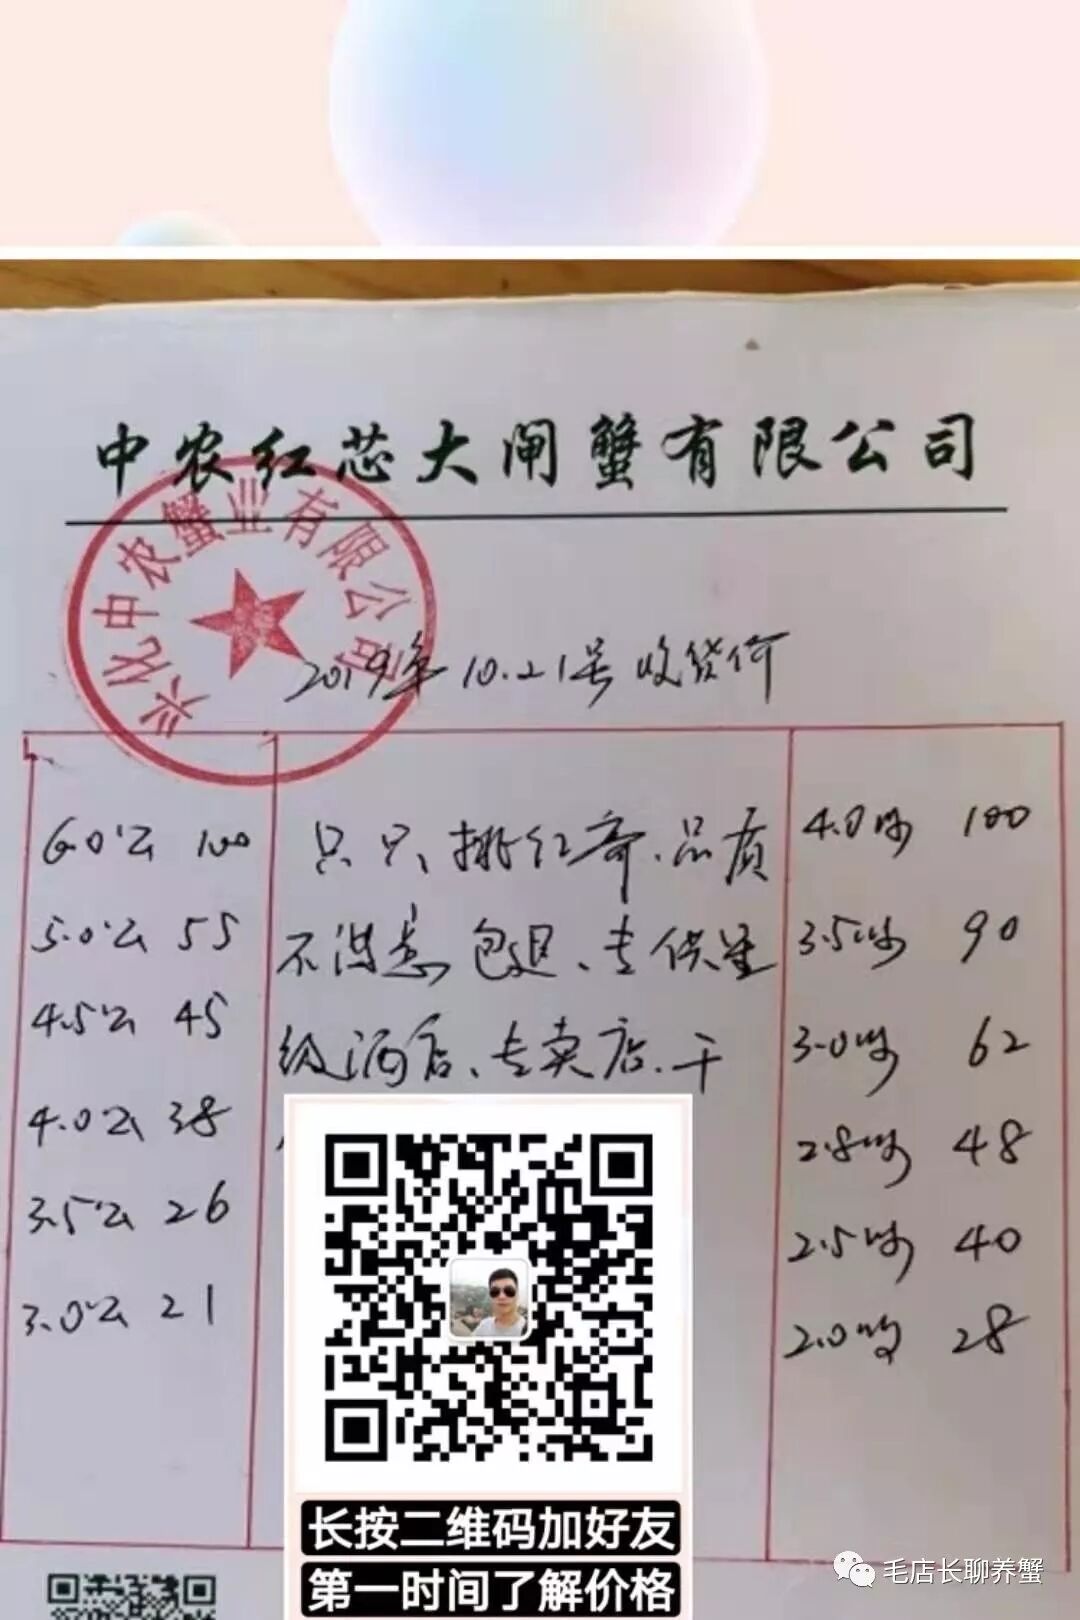 中农红芯大闸蟹有限公司
兴化中农蟹业有限公司
2019年10.21号收货价
6.0公 100
5.0公 55
4.5公 45
4.0公 38
3.5公 26
3.0公 21
只只挑红膏、品质
不满意包退、专供星
级酒店、专卖店、干
4.0母 100
3.5母 90
3.0母 62
2.8母 48
2.5母 40
2.0母 28
长按二维码加好友
第一时间了解价格
毛店长聊养蟹